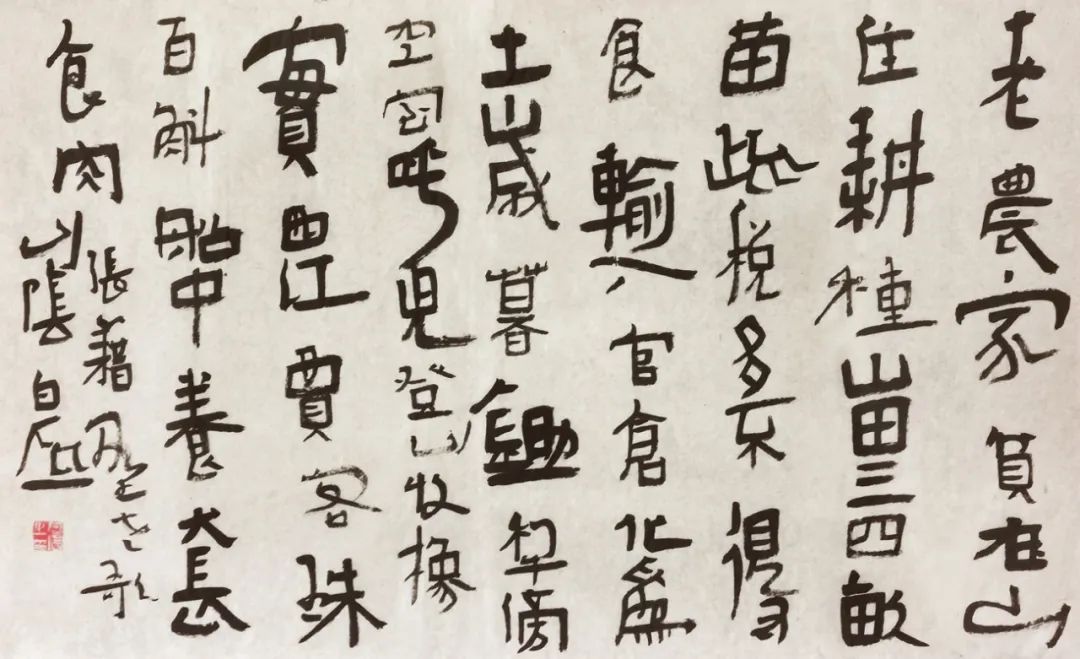 老農家貧在山
住耕種山田三四畝
苗疏稅多不得
食輸入官倉化為
土歲暮鋤犁傍
空室呼兒登山收橡
實西江賈客珠
百斛船中養犬長
食肉
張籍野老歌
山陰白砥